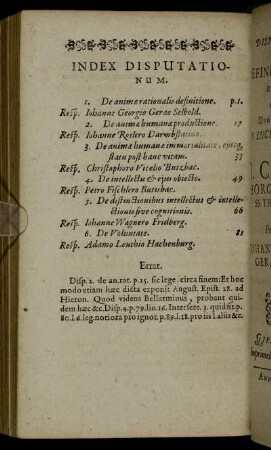 INDEX DISPUTATIO-
NUM.
1. De animæ rationalis definitione. p.1.
Resp. Iohanne Georgio Geræo Selbold.
2. De animæ humanæ productione. 17
Resp. Iohanne Reslero Darmbstatino.
3. De animæ humanæ immortalitate, ejusq;
statu post hanc vitam. 33
Resp. Christophoro Vitelio Butzbac.
4. De intellectu & ejus objecto. 49
Resp. Petro Fischlero Butzbac.
5. De distinctionibus intellectus & intelle-
ctionis sive cognitionis. 66
Resp. Iohanne Wagnero Fridberg.
6. De Voluntate. 81
Resp. Adamo Leuthio Hachenburg.
Errat.
Disp. 2. de an. rat. p. 25. sic lege. circa finem: Et hoc
modo etiam hæc dicta exponit August. Epist. 28. ad
Hieron. Quod videns Bellarminus, probant quidem
hæc &c. Disp. 4. p. 79. lin. 16. Intersere. 3. quid sit p.
80. l. 6. leg. notiora pro ignot. p. 89. l. 18. pro iis Laliis &c.
DISP
DE
CO
GER